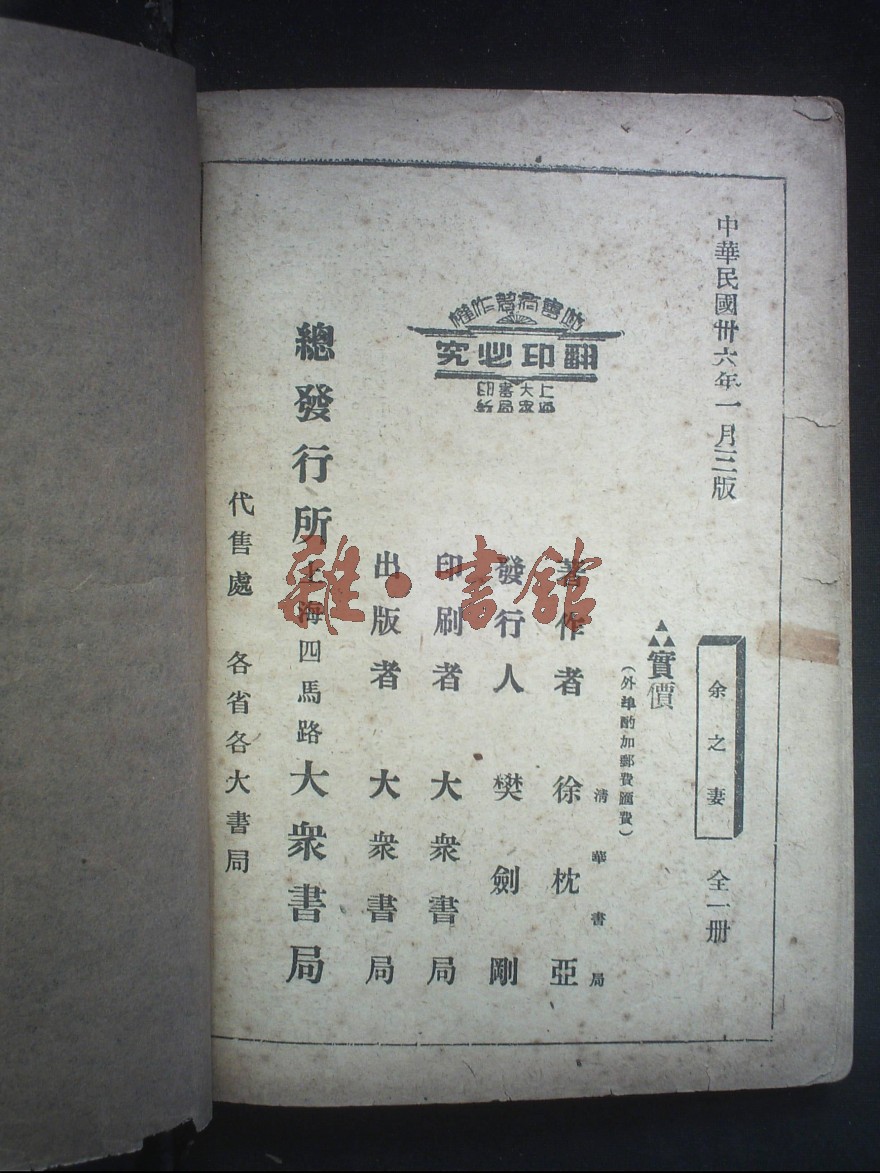 中華民國卅六年一月三版
余之妻
全一册
實價
（外埠酌加郵費匯費）
清華書局
著作者 徐枕亞
發行人 樊劍剛
印刷者 大衆書局
出版者 大衆書局
總發行所 上海四馬路 大衆書局
代售處 各省各大書局
此書有著作權
翻印必究
上海大衆書局印行
雜·書館